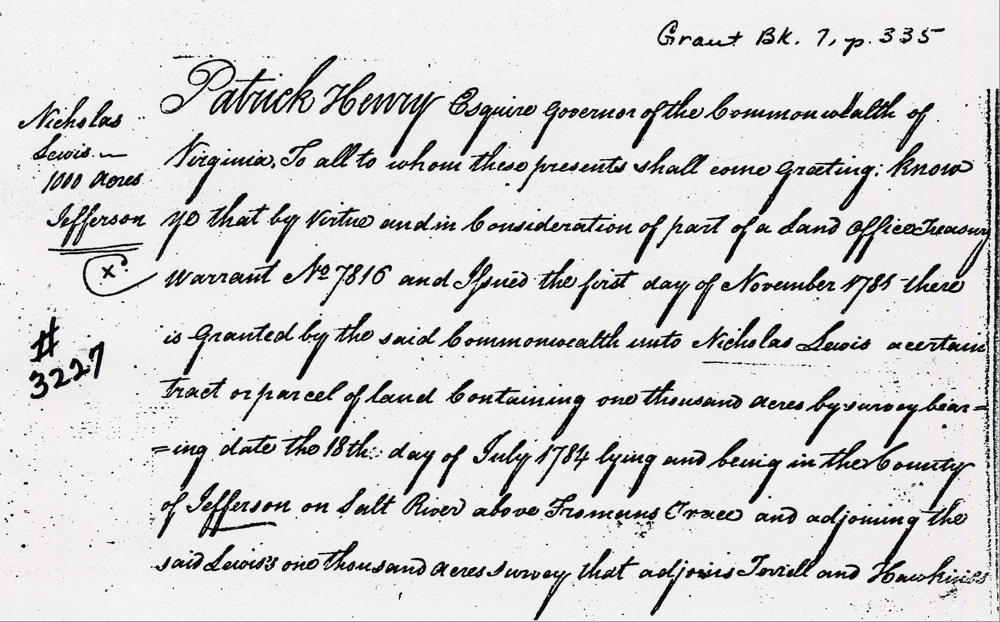 Grant Bk. 7, p. 335
Nicholas
Lewis
1000 Acres
Jefferson
X
#
3227
Patrick Henry Esquire Governor of the Commonwealth of
Virginia, To all to whom these presents shall come Greeting: know
ye that by Virtue and in Consideration of part of a Land Office Treasury
Warrant No 7816 and Issued the first day of November 1781 there
is Granted by the said Commonwealth unto Nicholas Lewis a certain
tract or parcel of land Containing one thousand acres by survey bear=
=ing date the 18th day of July 1784 lying and being in the County
of Jefferson on Salt River above Fromans Trace and adjoining the
said Lewis's one thousand acres survey that adjoins Terrell and Hawkins's